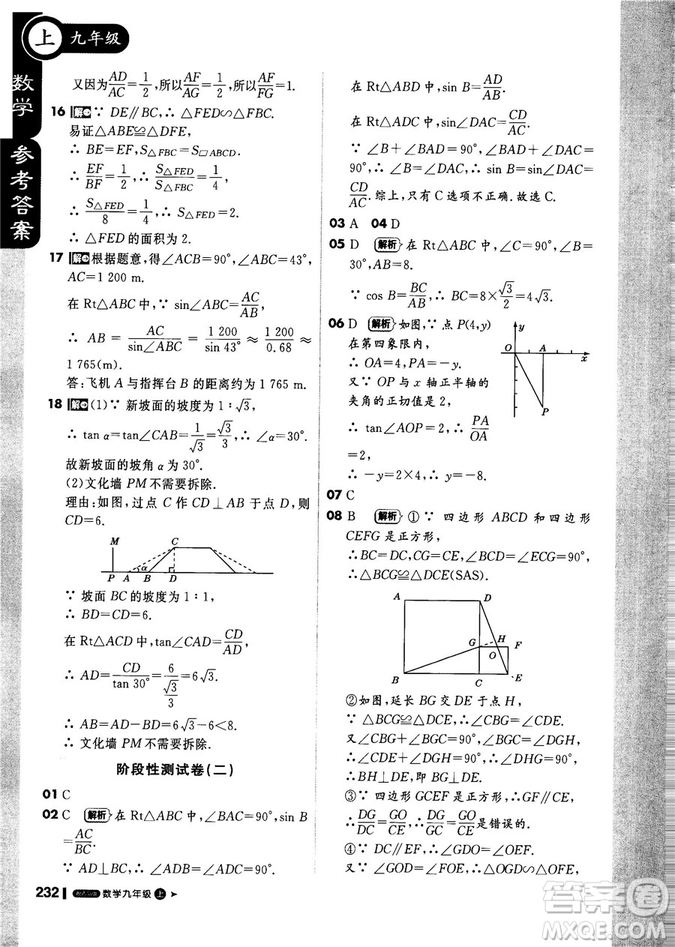 上 九年级
数学 参考答案
又因为AD/AC=1/2,所以AF/AG=1/2,所以AF/FG=1.
16 解 ∵ DE∥BC,∴ △FED∽△FBC.
易证△ABE≌△DFE,
∴ BE=EF,S△FBC=S□ABCD.
∴ EF/BF=1/2,∴ S△FED/S△FBC=1/4.
∴ S△FED/8=1/4,∴ S△FED=2.
∴ △FED的面积为2.
17 解 根据题意,得∠ACB=90°,∠ABC=43°,
AC=1 200 m.
在Rt△ABC中,∵ sin∠ABC=AC/AB,
∴ AB=AC/sin∠ABC≈1 200/sin 43°≈1 200/0.68≈
1 765(m).
答:飞机A与指挥台B的距离约为1 765 m.
18 解 (1)∵ 新坡面的坡度为1∶√3,
∴ tan α=tan∠CAB=1/√3=√3/3,∴ ∠α=30°.
故新坡面的坡角α为30°.
(2)文化墙PM不需要拆除.
理由:如图,过点C作CD⊥AB于点D,则
CD=6.
M C
α
P A B D
∵ 坡面BC的坡度为1∶1,
∴ BD=CD=6.
在Rt△ACD中,tan∠CAD=CD/AD,
∴ AD=CD/tan 30°=6/(√3/3)=6√3.
∴ AB=AD-BD=6√3-6<8.
∴ 文化墙PM不需要拆除.
阶段性测试卷(二)
01 C
02 C 解析 在Rt△ABC中,∠BAC=90°,sin B
=AC/BC.
∵ AD⊥BC,∴ ∠ADB=∠ADC=90°.
232 数学九年级 上
在Rt△ABD中,sin B=AD/AB.
在Rt△ACD中,sin∠DAC=CD/AC.
∵ ∠B+∠BAD=90°,∠BAD+∠DAC=
90°,∴ ∠B=∠DAC,∴ sin B=sin∠DAC=
CD/AC.综上,只有C选项不正确.故选C.
03 A 04 D
05 D 解析 在Rt△ABC中,∠C=90°,∠B=30°,
AB=8.
∵ cos B=BC/AB,∴ BC=8×√3/2=4√3.
06 D 解析 如图,∵ 点P(4,y)
在第四象限内,
∴ OA=4,PA=-y.
又∵ OP与x轴正半轴的
夹角的正切值是2,
∴ tan∠AOP=2,∴ PA/OA
=2,
∴ -y=2×4,∴ y=-8.
y
O A x
P
07 C
08 B 解析 ①∵ 四边形ABCD和四边形
CEFG是正方形,
∴BC=DC,CG=CE,∠BCD=∠ECG=90°,
∴△BCG≌△DCE(SAS).
A D
G H F
O
B C E
②如图,延长BG交DE于点H,
∵ △BCG≌△DCE,∴ ∠CBG=∠CDE.
又∠CBG+∠BGC=90°,∠BGC=∠DGH,
∴ ∠CDE+∠DGH=90°,∴ ∠DHG=90°,
∴BH⊥DE,即BG⊥DE.
③∵ 四边形GCEF是正方形,
∴GF∥CE,∴DG/DC=GO/CE,∴DG/GC=GO/CE是错误的.
④∵ DC∥EF,∴ ∠GDO=∠OEF.
∵ ∠GOD=∠FOE,∴ △OGD∽△OFE,
答案圈